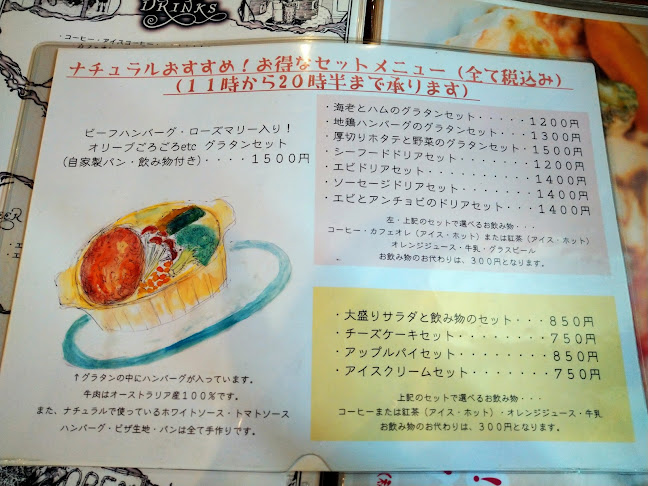 DRINKS
・コーヒー・アイスコーヒー
ナチュラルおすすめ！お得なセットメニュー（全て税込み）
（１１時から２０時半まで承ります）
ビーフハンバーグ・ローズマリー入り！
オリーブごろごろetc グラタンセット
（自家製パン・飲み物付き）・・・・１５００円
↑グラタンの中にハンバーグが入っています。
牛肉はオーストラリア産１００％です。
また、ナチュラルで使っているホワイトソース・トマトソース
ハンバーグ・ピザ生地・パンは全て手作りです。
・海老とハムのグラタンセット・・・・・１２００円
・地鶏ハンバーグのグラタンセット・・・１３００円
・厚切りホタテと野菜のグラタンセット・１５００円
・シーフードドリアセット・・・・・・・１２００円
・エビドリアセット・・・・・・・・・・１４００円
・ソーセージドリアセット・・・・・・・１４００円
・エビとアンチョビのドリアセット・・・１４００円
左・上記のセットで選べるお飲み物・・・
コーヒー・カフェオレ（アイス・ホット）または紅茶（アイス・ホット）
オレンジジュース・牛乳・グラスビール
お飲み物のお代わりは、３００円となります。
・大盛りサラダと飲み物のセット・・・８５０円
・チーズケーキセット・・・・・・・・７５０円
・アップルパイセット・・・・・・・・８５０円
・アイスクリームセット・・・・・・・７５０円
上記のセットで選べるお飲み物・・・
コーヒーまたは紅茶（アイス・ホット）・オレンジジュース・牛乳
お飲み物のお代わりは、３００円となります。
OPEN